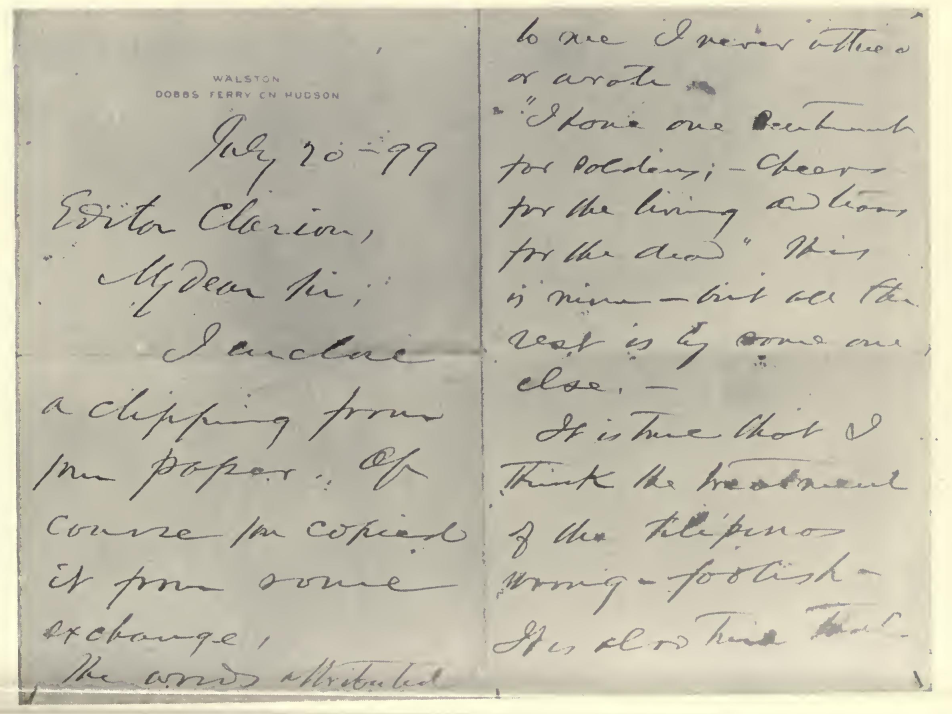 WALSTON
DOBBS FERRY ON HUDSON
July 20 - 99
Editor Clarion,
My dear Sir;
I enclose
a clipping from
your paper. Of
course you copied
it from some
exchange,
The words attributed
to me I never uttered
or wrote
"I have one sentiment
for soldiers; - Cheers
for the living and tears
for the dead" This
is mine - but all the
rest is by some one
else. -
It is true that I
think the treatment
of the Filipinos
wrong - foolish -
It is also true that